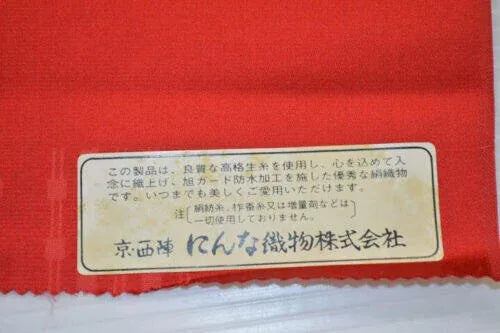 この製品は、良質な高格生糸を使用し、心を込めて入
念に織上げ、旭ガード防水加工を施した優秀な絹織物
です。いつまでも美しくご愛用いただけます。
注 絹紡糸、柞蚕糸又は増量剤などは
一切使用しておりません。
京・西陣 にんな織物株式会社